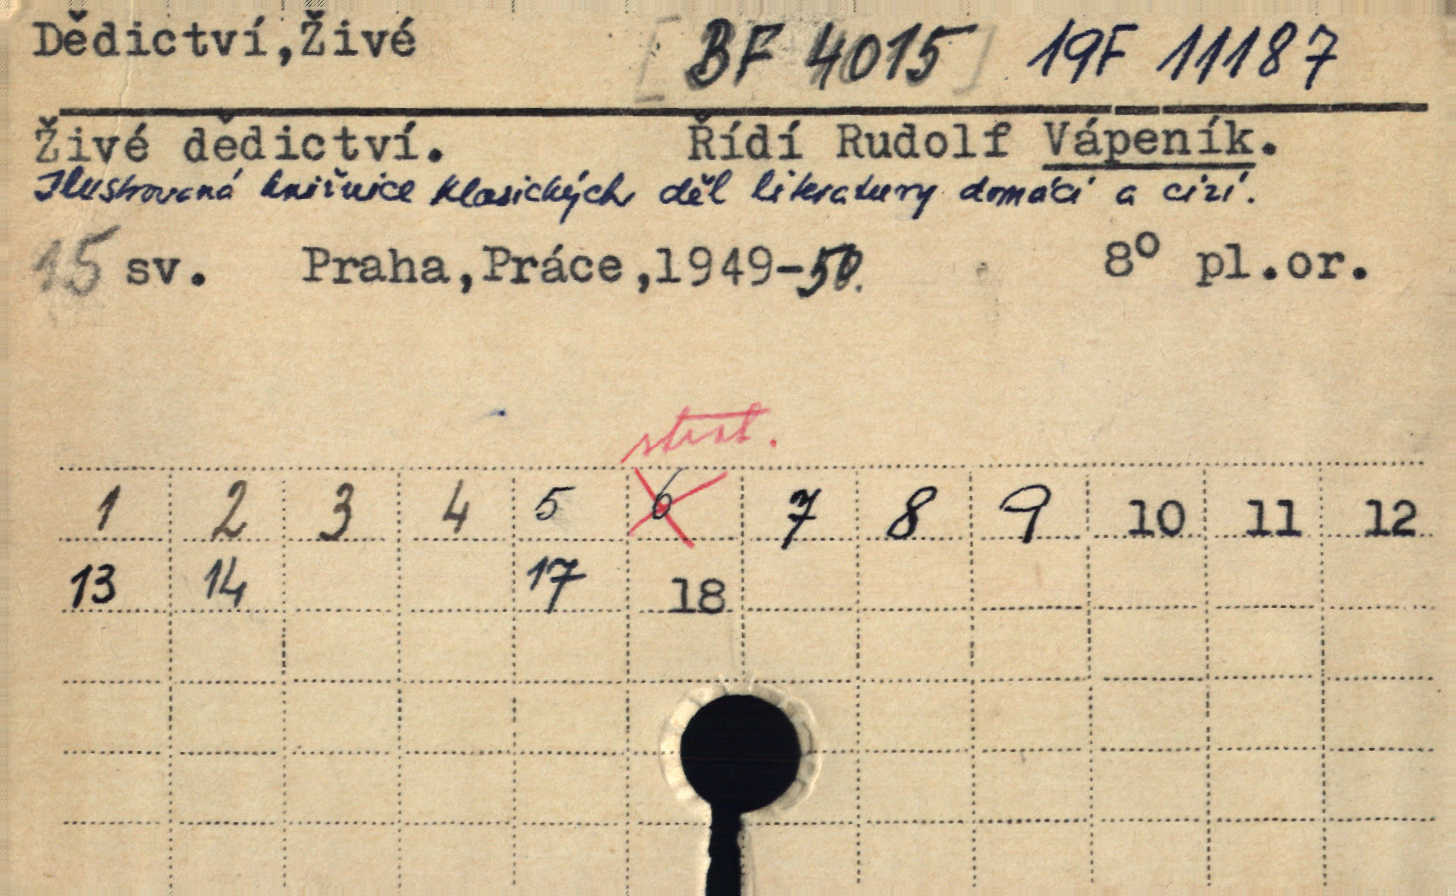 Dědictví,Živé [BF 4015] 19F 11187
Živé dědictví. Řídí Rudolf Vápeník.
Ilustrovaná knižnice klasických děl literatury domácí a cizí.
15 sv. Praha,Práce,1949-50. 8° pl.or.
1 2 3 4 5 6 7 8 9 10 11 12
13 14 17 18